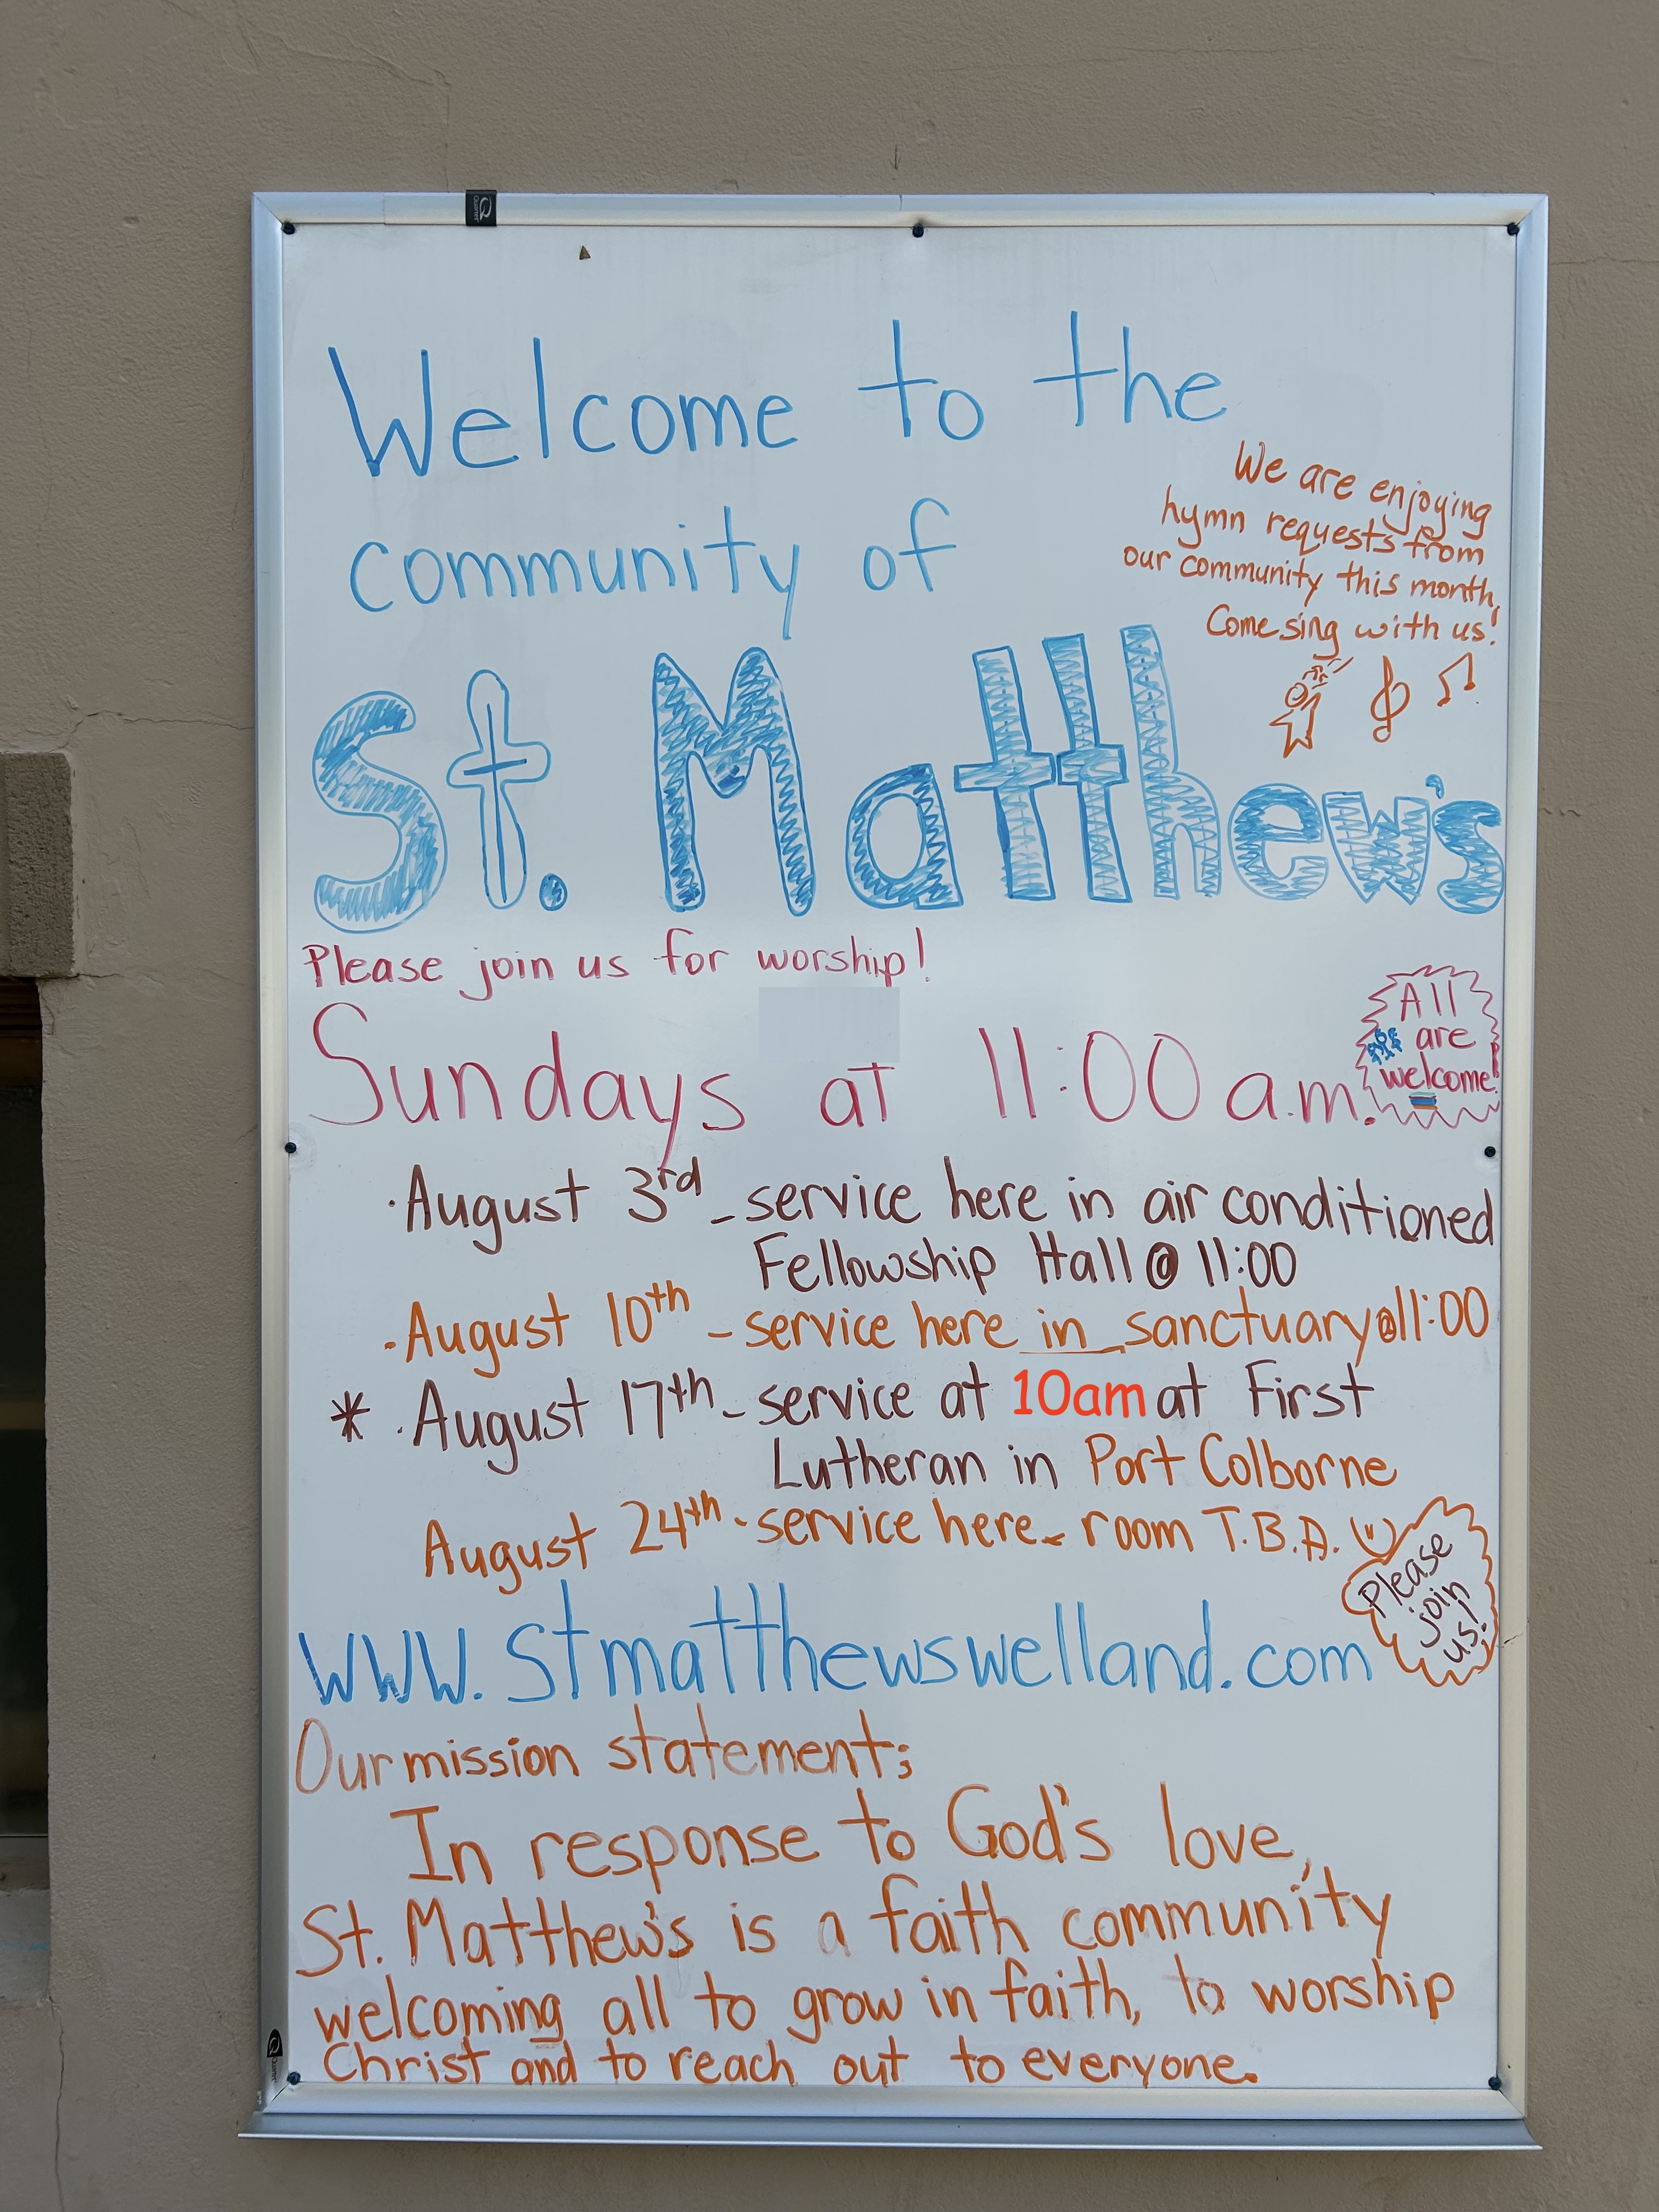 Welcome to the
community of
We are enjoying
hymn requests from
our community this month,
Come sing with us!
St. Matthew's
Please join us for worship!
Sundays at 11:00 a.m.
All
are
welcome!
·August 3rd - service here in air conditioned
Fellowship Hall @ 11:00
·August 10th - service here in sanctuary @ 11:00
* ·August 17th - service at 10am at First
Lutheran in Port Colborne
August 24th - service here - room T.B.A.
Please
join
us!
www.stmatthewswelland.com
Our mission statement;
In response to God's love,
St. Matthew's is a faith community
welcoming all to grow in faith, to worship
Christ and to reach out to everyone.